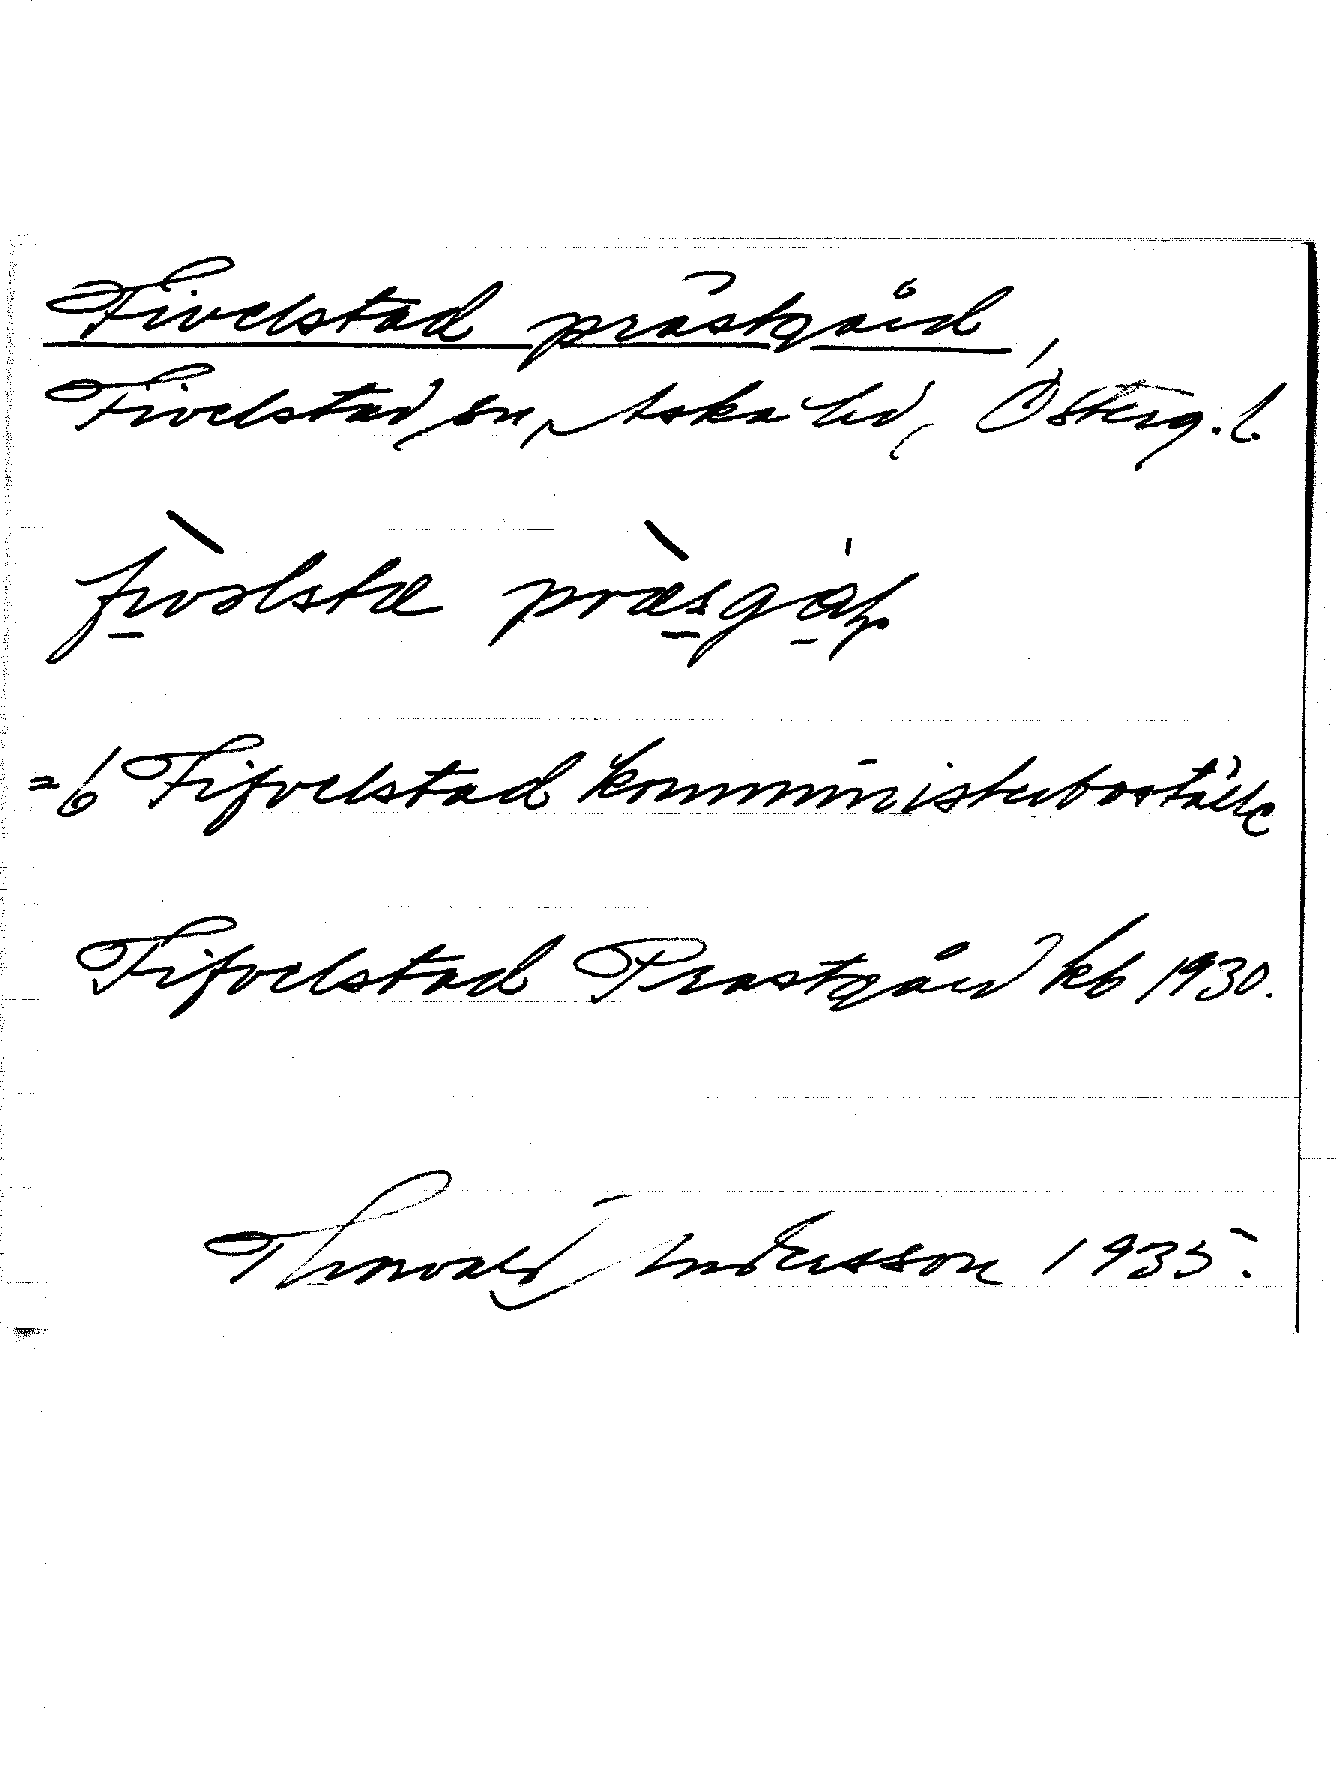 Fivelstad prästgård,
Fivelstad sn, Aska hd, Österg. l.
fìvəlstæ præ̀sgáḷ
= 6 Fifvelstad komministerboställe
Fifvelstad Prästgård kb 1930.
Thorvald Andersson 1935.